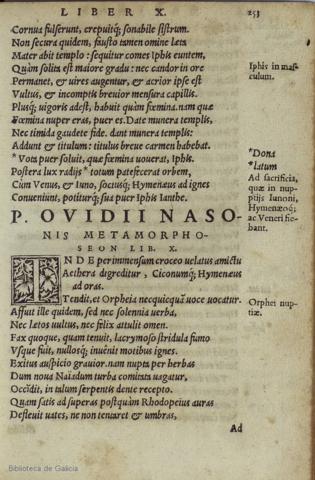 LIBER X. 253
Cornua fulserunt, crepuitq́; sonabile sistrum.
Non secura quidem, fausto tamen omine læta
Mater abit templo: sequitur comes Iphis euntem,
Quàm solita est maiore gradu: nec candor in ore
Permanet, & uires augentur, & acrior ipse est
Vultus, & incomptis breuior mensura capillis.
Plusq́; uigoris adest, habuit quàm fœmina. nam quæ
Fœmina nuper eras, puer es. Date munera templis,
Nec timida gaudete fide. dant munera templis:
Addunt & titulum: titulus breue carmen habebat.
* Vota puer soluit, quæ fœmina uouerat, Iphis.
Postera lux radijs * totum patefecerat orbem,
Cùm Venus, & Iuno, sociusq́; Hymenæus ad ignes
Conueniunt, potiturq́; sua puer Iphis Ianthe.
Iphis in mas
culum.
*Dona
*latum
Ad sacrificia,
quæ in nup-
tijs Iunoni,
Hymenæoq́;
ac Veneri fie-
bant.
P. OVIDII NASO-
NIS METAMORPHO-
SEON LIB. X.
INDE per immensum croceo uelatus amictu
Aethera digreditur, Ciconumq́; Hymenæus
ad oras.
Tendit, et Orpheia necquicquã uoce uocatur.
Affuit ille quidem, sed nec solennia uerba,
Nec lætos uultus, nec felix attulit omen.
Fax quoque, quam tenuit, lacrymoso stridula fumo
Vsque fuit, nullosq́; inuenit motibus ignes.
Exitus auspicio grauior. nam nupta per herbas
Dum noua Naiadum turba comitata uagatur,
Occidit, in talum serpentis dente recepto.
Quam satis ad superas postquàm Rhodopeius auras
Defleuit uates, ne non tentaret & umbras,
Orphei nup-
tiæ.
Ad
Biblioteca de Galicia